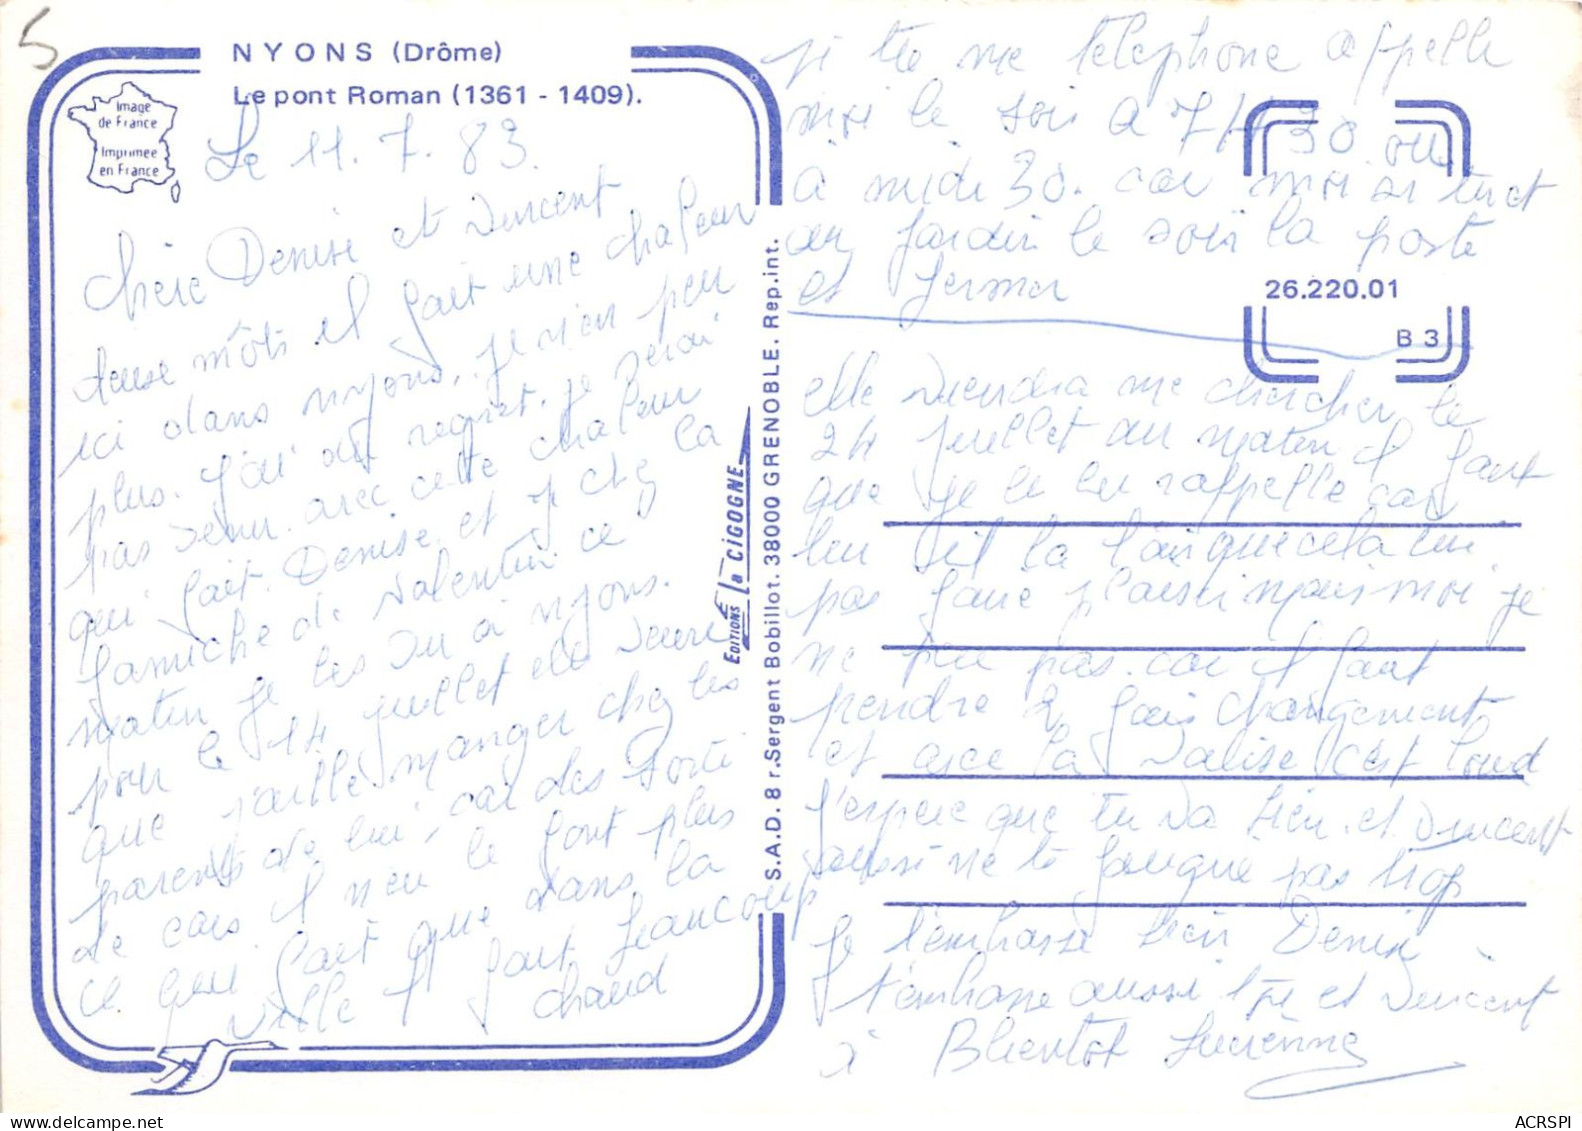 5
NYONS (Drôme)
Le pont Roman (1361 - 1409).
Image
de France
Imprimée
en France
Le 11.7.83.
Chère Denise et Vincent
mots il fait une chaleur
ici dans nyons, je n'en peu
plus. j'ai du regret. je serai
pas venu avec cette chaleur
qui fait. Denise et J chez la
de Valentin ce
matin je les vu à nyons.
pour le 14 juillet elle
que j'aille manger chez les
parents de lui, car des
de cars il n'eu le font plus
ce qeu fait que dans la
ville Il fait beaucoup
chaud
EDITIONS la CIGOGNE
S.A.D. 8 r. Sergent Bobillot. 38000 GRENOBLE. Rep. int.
si tu me telephone appelle
moi le soir a 7H30 ou
à midi 30. car moi si
au jardin le soir la poste
et fermer
26.220.01
B 3
elle viendra me chercher le
24 juillet au matin il faut
que je le lui rappelle car
que cela lui
pas faire plaisir mais moi je
ne peu pas. car il faut
prendre 2 fois changements
et avec la valise c'est lourd
j'espere que tu va bien et Vincent
aussi ne te fatigue pas trop
Je t'embrasse bien Denise
t'embrasse aussi et Vincent
à Bientot Lucienne
ACRSPI